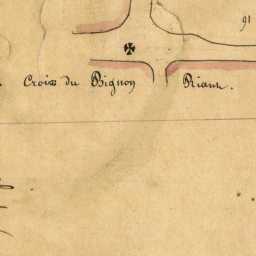 91
Croix du Bignon